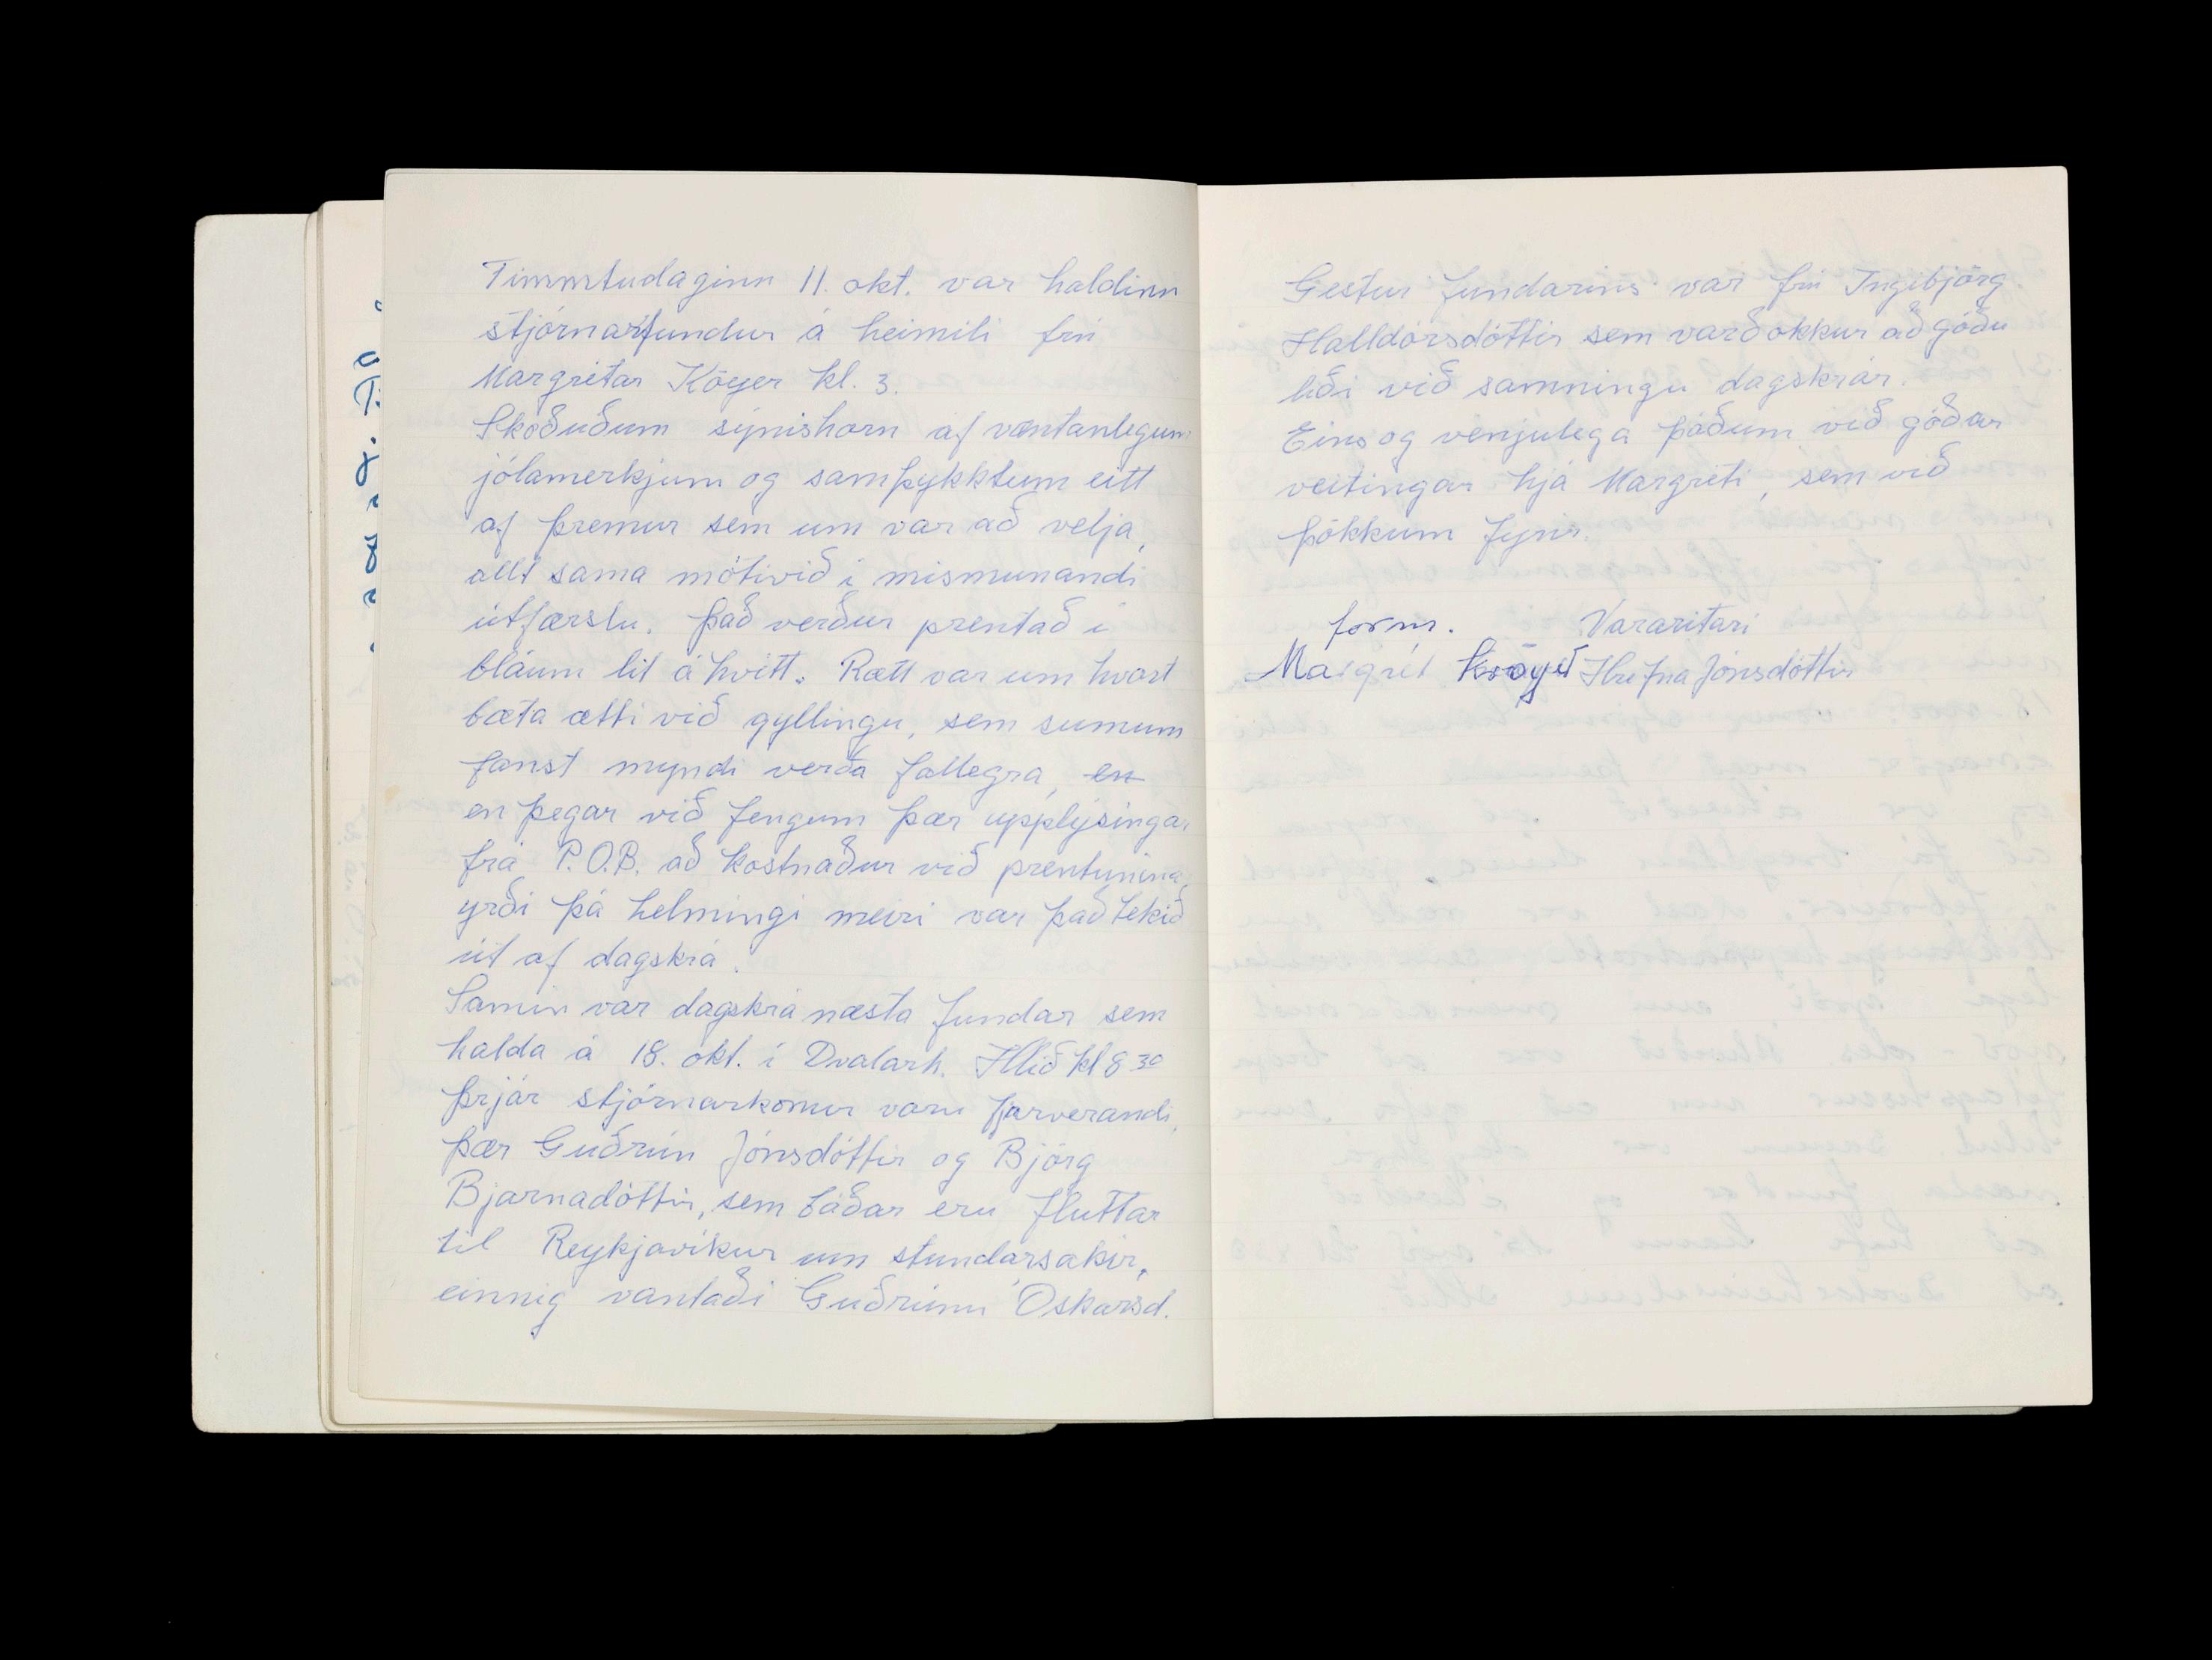 Fimmtudaginn 11. okt. var haldinn
stjórnarfundur á heimili frú
Margrétar Köyer kl. 3.
Skoðuðum sýnishorn af væntanlegum
jólamerkjum og samþykktum eitt
af þremur sem um var að velja,
allt sama mótivið í mismunandi
útfærslu. Það verður prentað í
bláum lit á hvítt. Rætt var um hvort
bæta ætti við gyllingu, sem sumum
fanst myndi verða fallegra, en
en þegar við fengum þær upplýsingar
frá P.O.B. að kostnaður við prentunina,
yrði þá helmingi meiri var það tekið
út af dagskrá.
Samin var dagskrá næsta fundar sem
halda á 18. okt. í Dvalarh. Hlíð kl 8 30
Þrjár stjórnarkonur voru fjarverandi,
þær Guðrún Jónsdóttir og Björg
Bjarnadóttir, sem báðar eru fluttar
til Reykjavíkur um stundarsakir,
einnig vantaði Guðrúnu Óskarsd.
Gestur fundarins var frú Ingibjörg
Halldórsdóttir sem varð okkur að góðu
liði við samningu dagskrár.
Eins og venjulega þáðum við góðar
veitingar hjá Margréti, sem við
þökkum fyrir.
form. Vararitari
Margrét Kröyer Hrefna Jónsdóttir